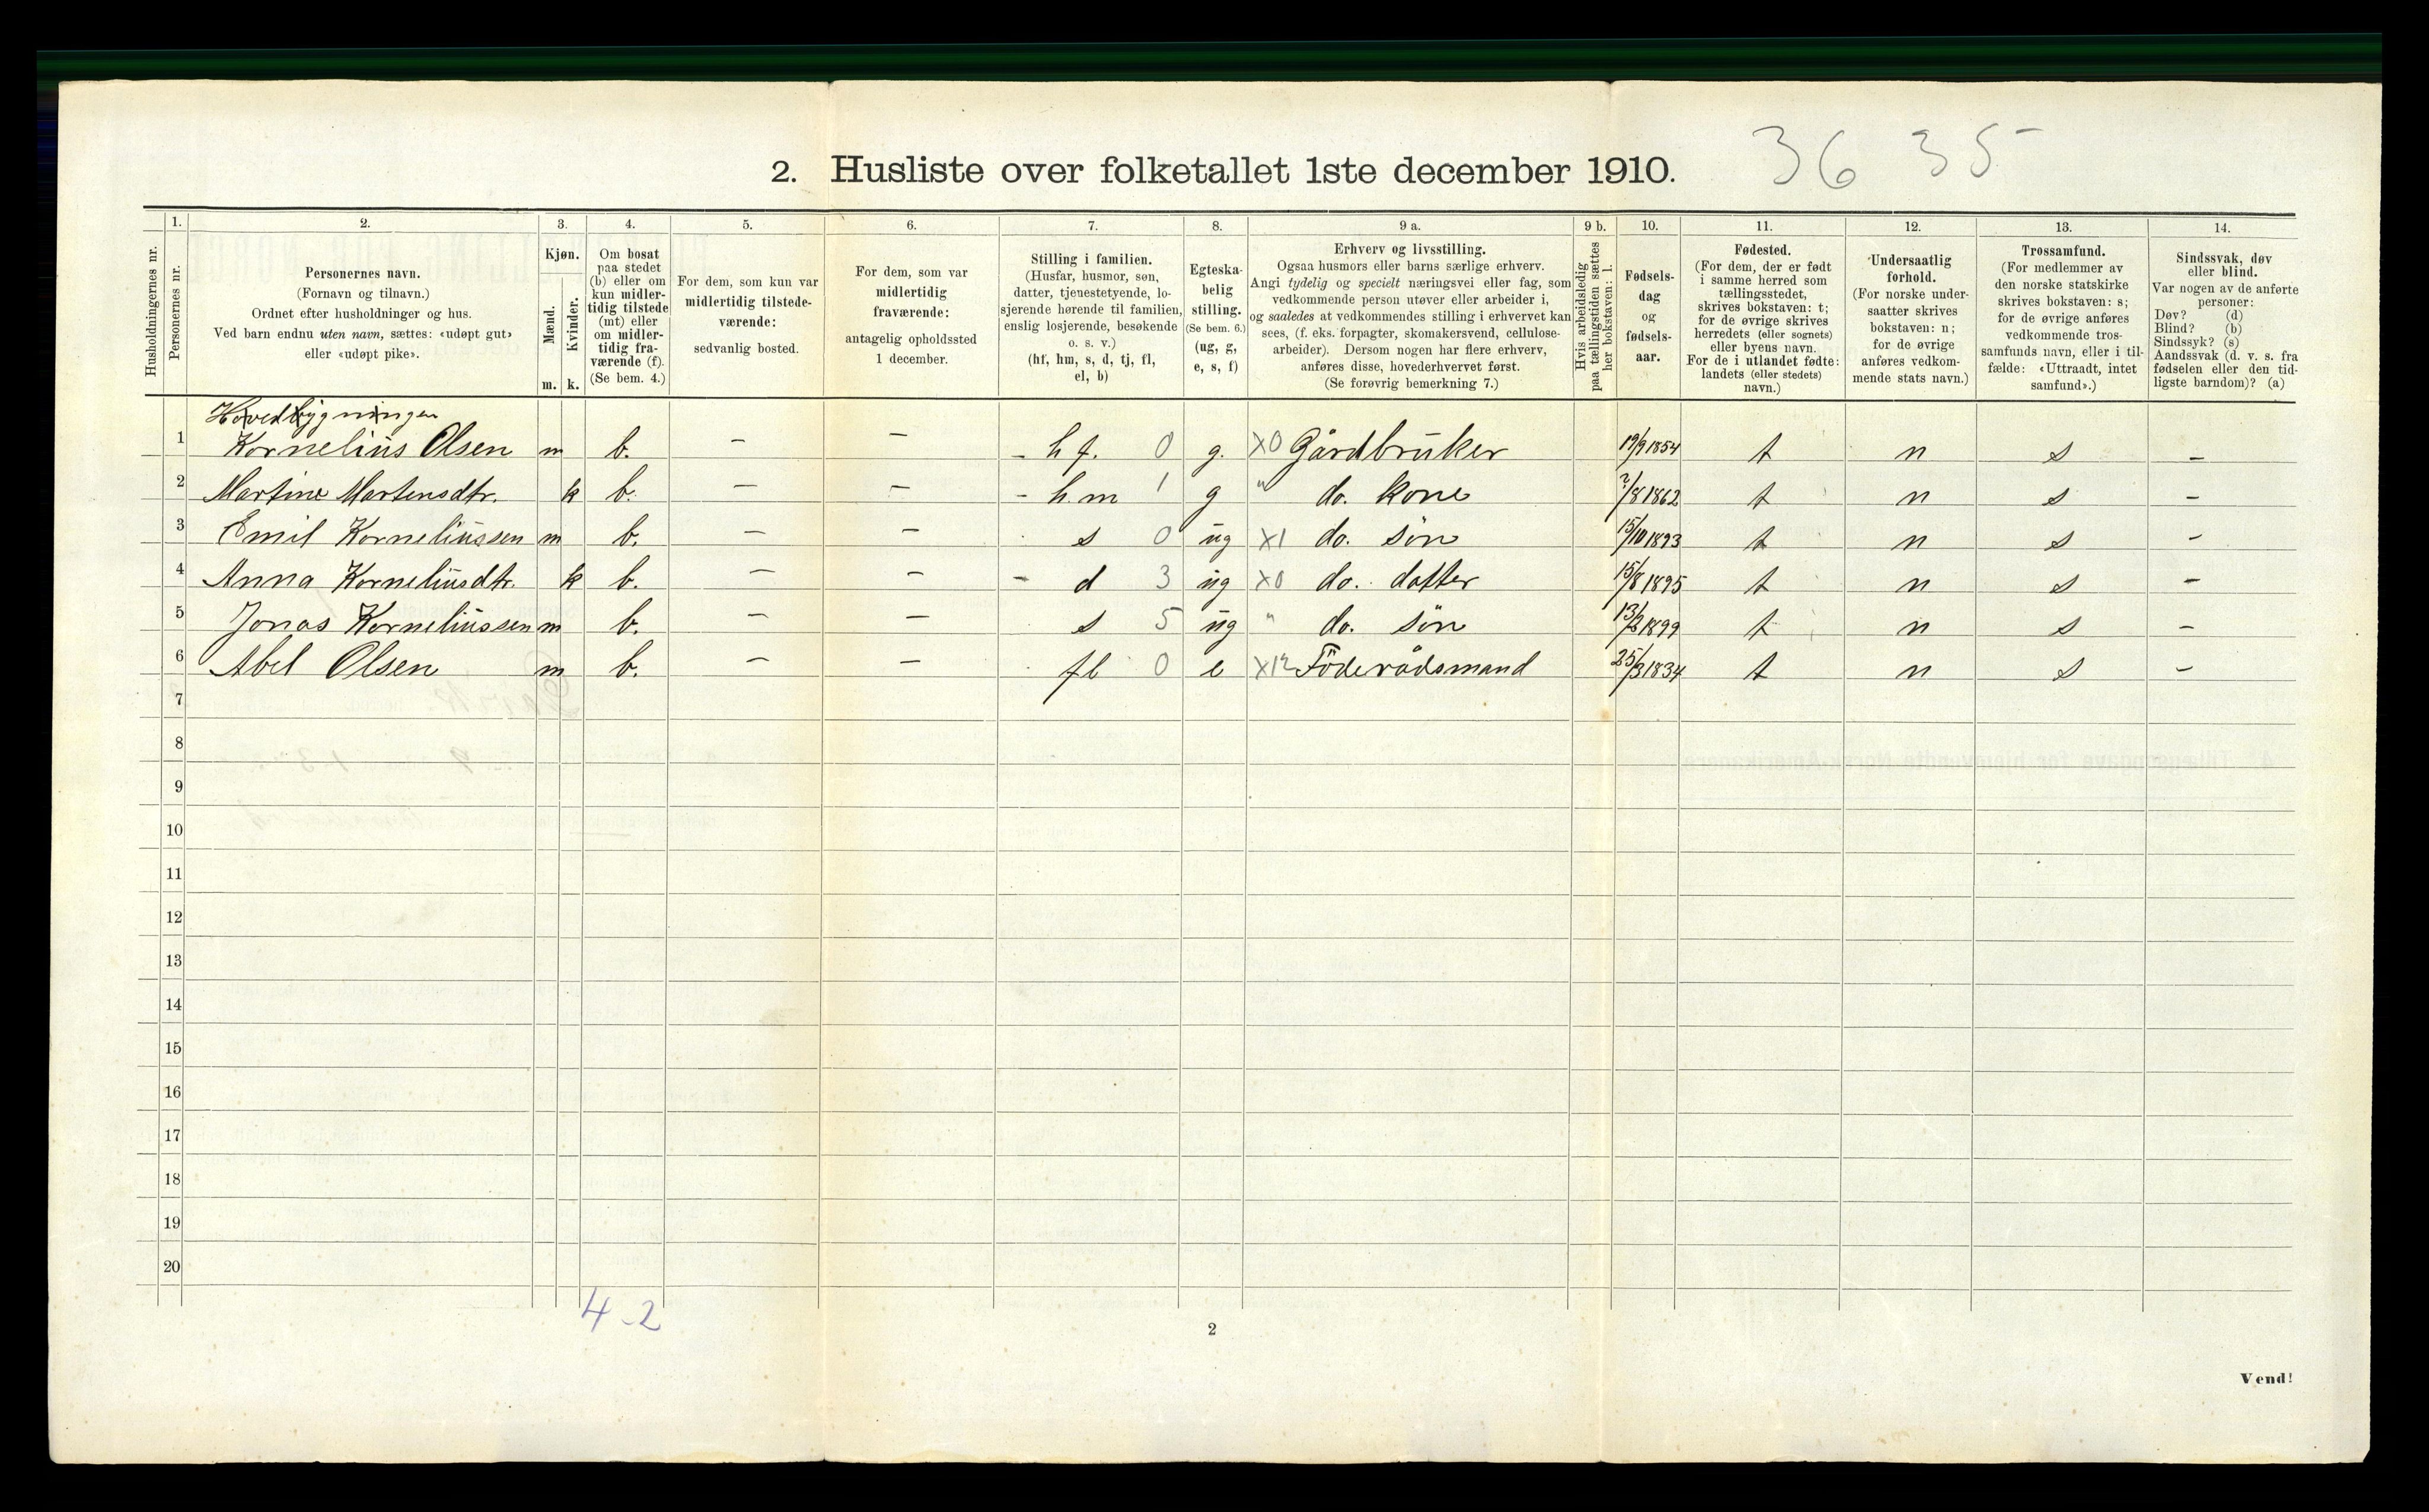 36 35
2. Husliste over folketallet 1ste december 1910.
Husholdningernes nr.
1.
Personernes nr.
2.
Personernes navn.
(Fornavn og tilnavn.)
Ordnet efter husholdninger og hus.
Ved barn endnu uten navn, sættes: «udøpt gut»
eller «udøpt pike».
3.
Kjøn.
Mænd.
Kvinder.
m. k.
4.
Om bosat
paa stedet
(b) eller om
kun midler-
tidig tilstede
(mt) eller
om midler-
tidig fra-
værende (f).
(Se bem. 4.)
5.
For dem, som kun var
midlertidig tilstede-
værende:
sedvanlig bosted.
6.
For dem, som var
midlertidig
fraværende:
antagelig opholdssted
1 december.
7.
Stilling i familien.
(Husfar, husmor, søn,
datter, tjenestetyende, lo-
sjerende hørende til familien,
enslig losjerende, besøkende
o. s. v.)
(hf, hm, s, d, tj, fl,
el, b)
8.
Egteska-
belig
stilling.
(Se bem. 6.)
(ug, g,
e, s, f)
9 a.
Erhverv og livsstilling.
Ogsaa husmors eller barns særlige erhverv.
Angi tydelig og specielt næringsvei eller fag, som
vedkommende person utøver eller arbeider i,
og saaledes at vedkommendes stilling i erhvervet kan
sees, (f. eks. forpagter, skomakersvend, cellulose-
arbeider). Dersom nogen har flere erhverv,
anføres disse, hovederhvervet først.
(Se forøvrig bemerkning 7.)
9 b.
Hvis arbeidsledig
paa tællingstiden sættes
her bokstaven: l.
10.
Fødsels-
dag
og
fødsels-
aar.
11.
Fødested.
(For dem, der er født
i samme herred som
tællingsstedet,
skrives bokstaven: t;
for de øvrige skrives
herredets (eller sognets)
eller byens navn.
For de i utlandet fødte:
landets (eller stedets)
navn.)
12.
Undersaatlig
forhold.
(For norske under-
saatter skrives
bokstaven: n;
for de øvrige
anføres vedkom-
mende stats navn.)
13.
Trossamfund.
(For medlemmer av
den norske statskirke
skrives bokstaven: s;
for de øvrige anføres
vedkommende tros-
samfunds navn, eller i til-
fælde: «Uttraadt, intet
samfund».)
14.
Sindssvak, døv
eller blind.
Var nogen av de anførte
personer:
Døv? (d)
Blind? (b)
Sindssyk? (s)
Aandssvak (d. v. s. fra
fødselen eller den tid-
ligste barndom)? (a)
Hovedbygningen
1 Kornelius Olsen m b. – – - h f. 0 g. X0 Gårdbruker 19/9 1854 t n s –
2 Martine Martensdtr. k b. – – - h.m 1 g " do. kone /8 1862 t n s –
3 Emil Korneliussen m b. – – s 0 ug X1 do. søn 15/10 1893 t n s –
4 Anna Korneliusdtr. k b. – – - d 3 ug X0 do. datter 15/8 1895 t n s –
5 Jonas Korneliussen m b. – – s 5 ug " do. søn 1899 t n s –
6 Abel Olsen m b. – – fl 0 e X12 Föderådsmand 25/3 1834 t n s –
7
8
9
10
11
12
13
14
15
16
17
18
19
20
4-2
2
Vend!